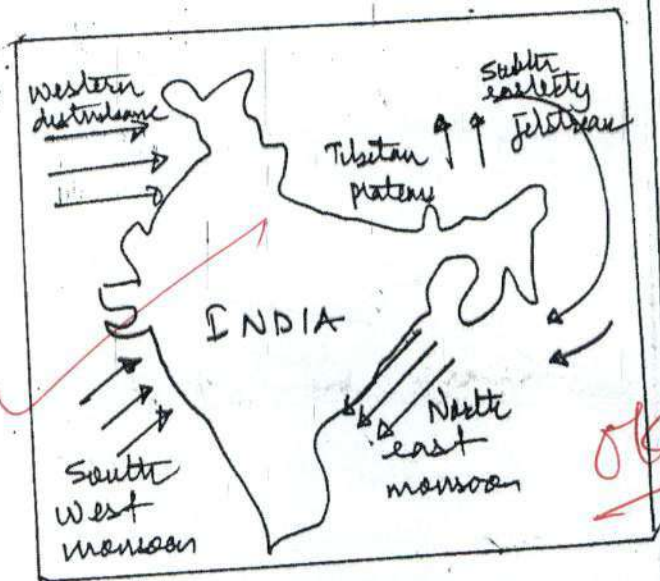 Western
disturbance
Tibetan
plateau
easterly
Jetstream
INDIA
South
West
monsoon
North
east
monsoon
OK